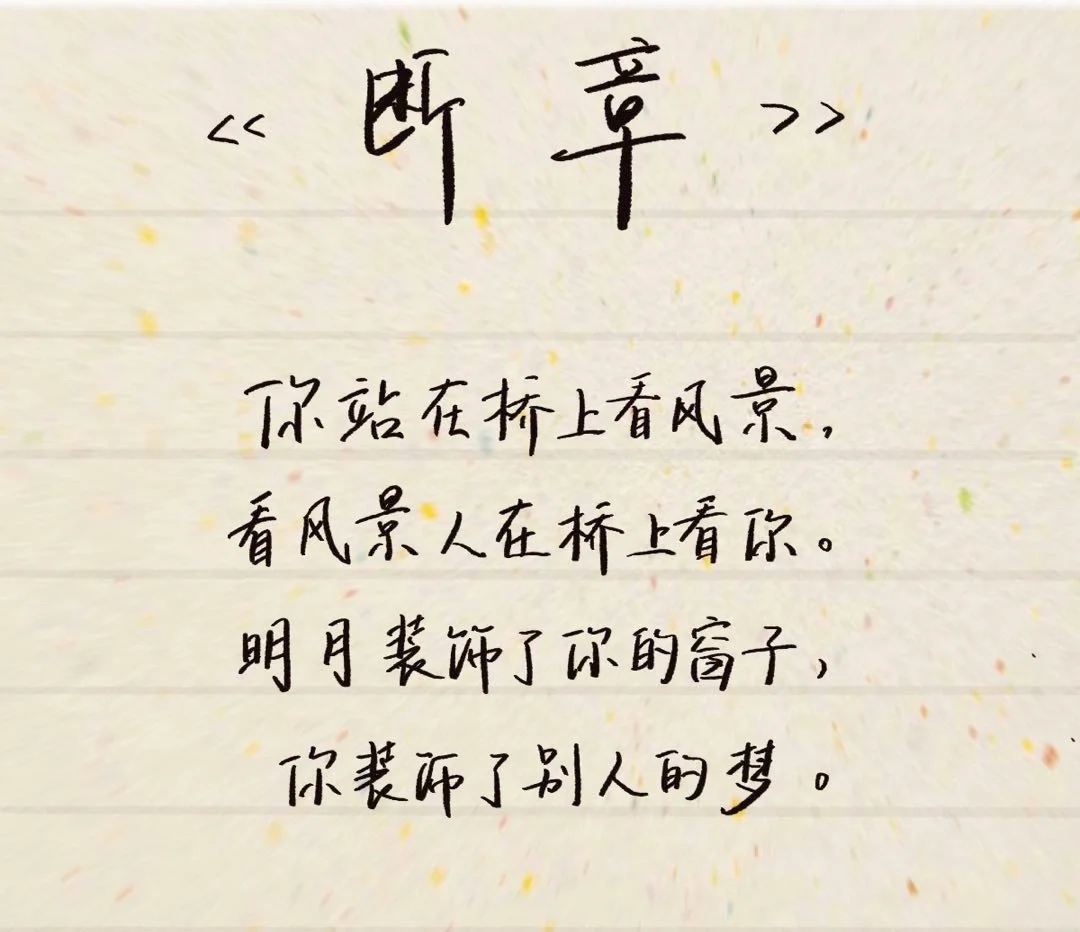 <<断章>>
你站在桥上看风景，
看风景人在桥上看你。
明月装饰了你的窗子，
你装饰了别人的梦。